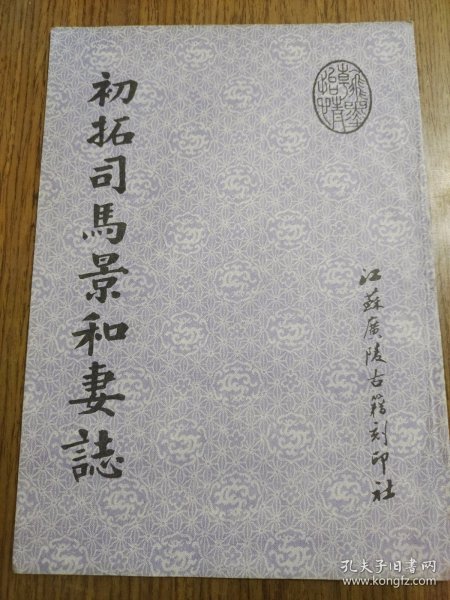 初拓司馬景和妻誌
江蘇廣陵古籍刻印社
孔夫子旧书网
www.kongfz.com